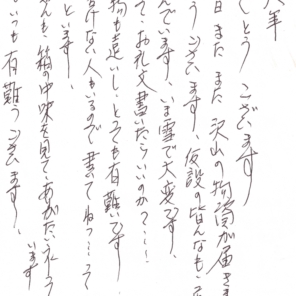 年
とう ございます
日 また また 沢山の物資が届きま
う ございます、仮設の皆んなも、
んでいます、いま雪で大変です、
て、お礼文書いたらいいのか?…!
物も とても有難いです
けない人もいるので書いてねっ…って
います。
んも、箱の中味を見て、
いつも有難うございます。
います